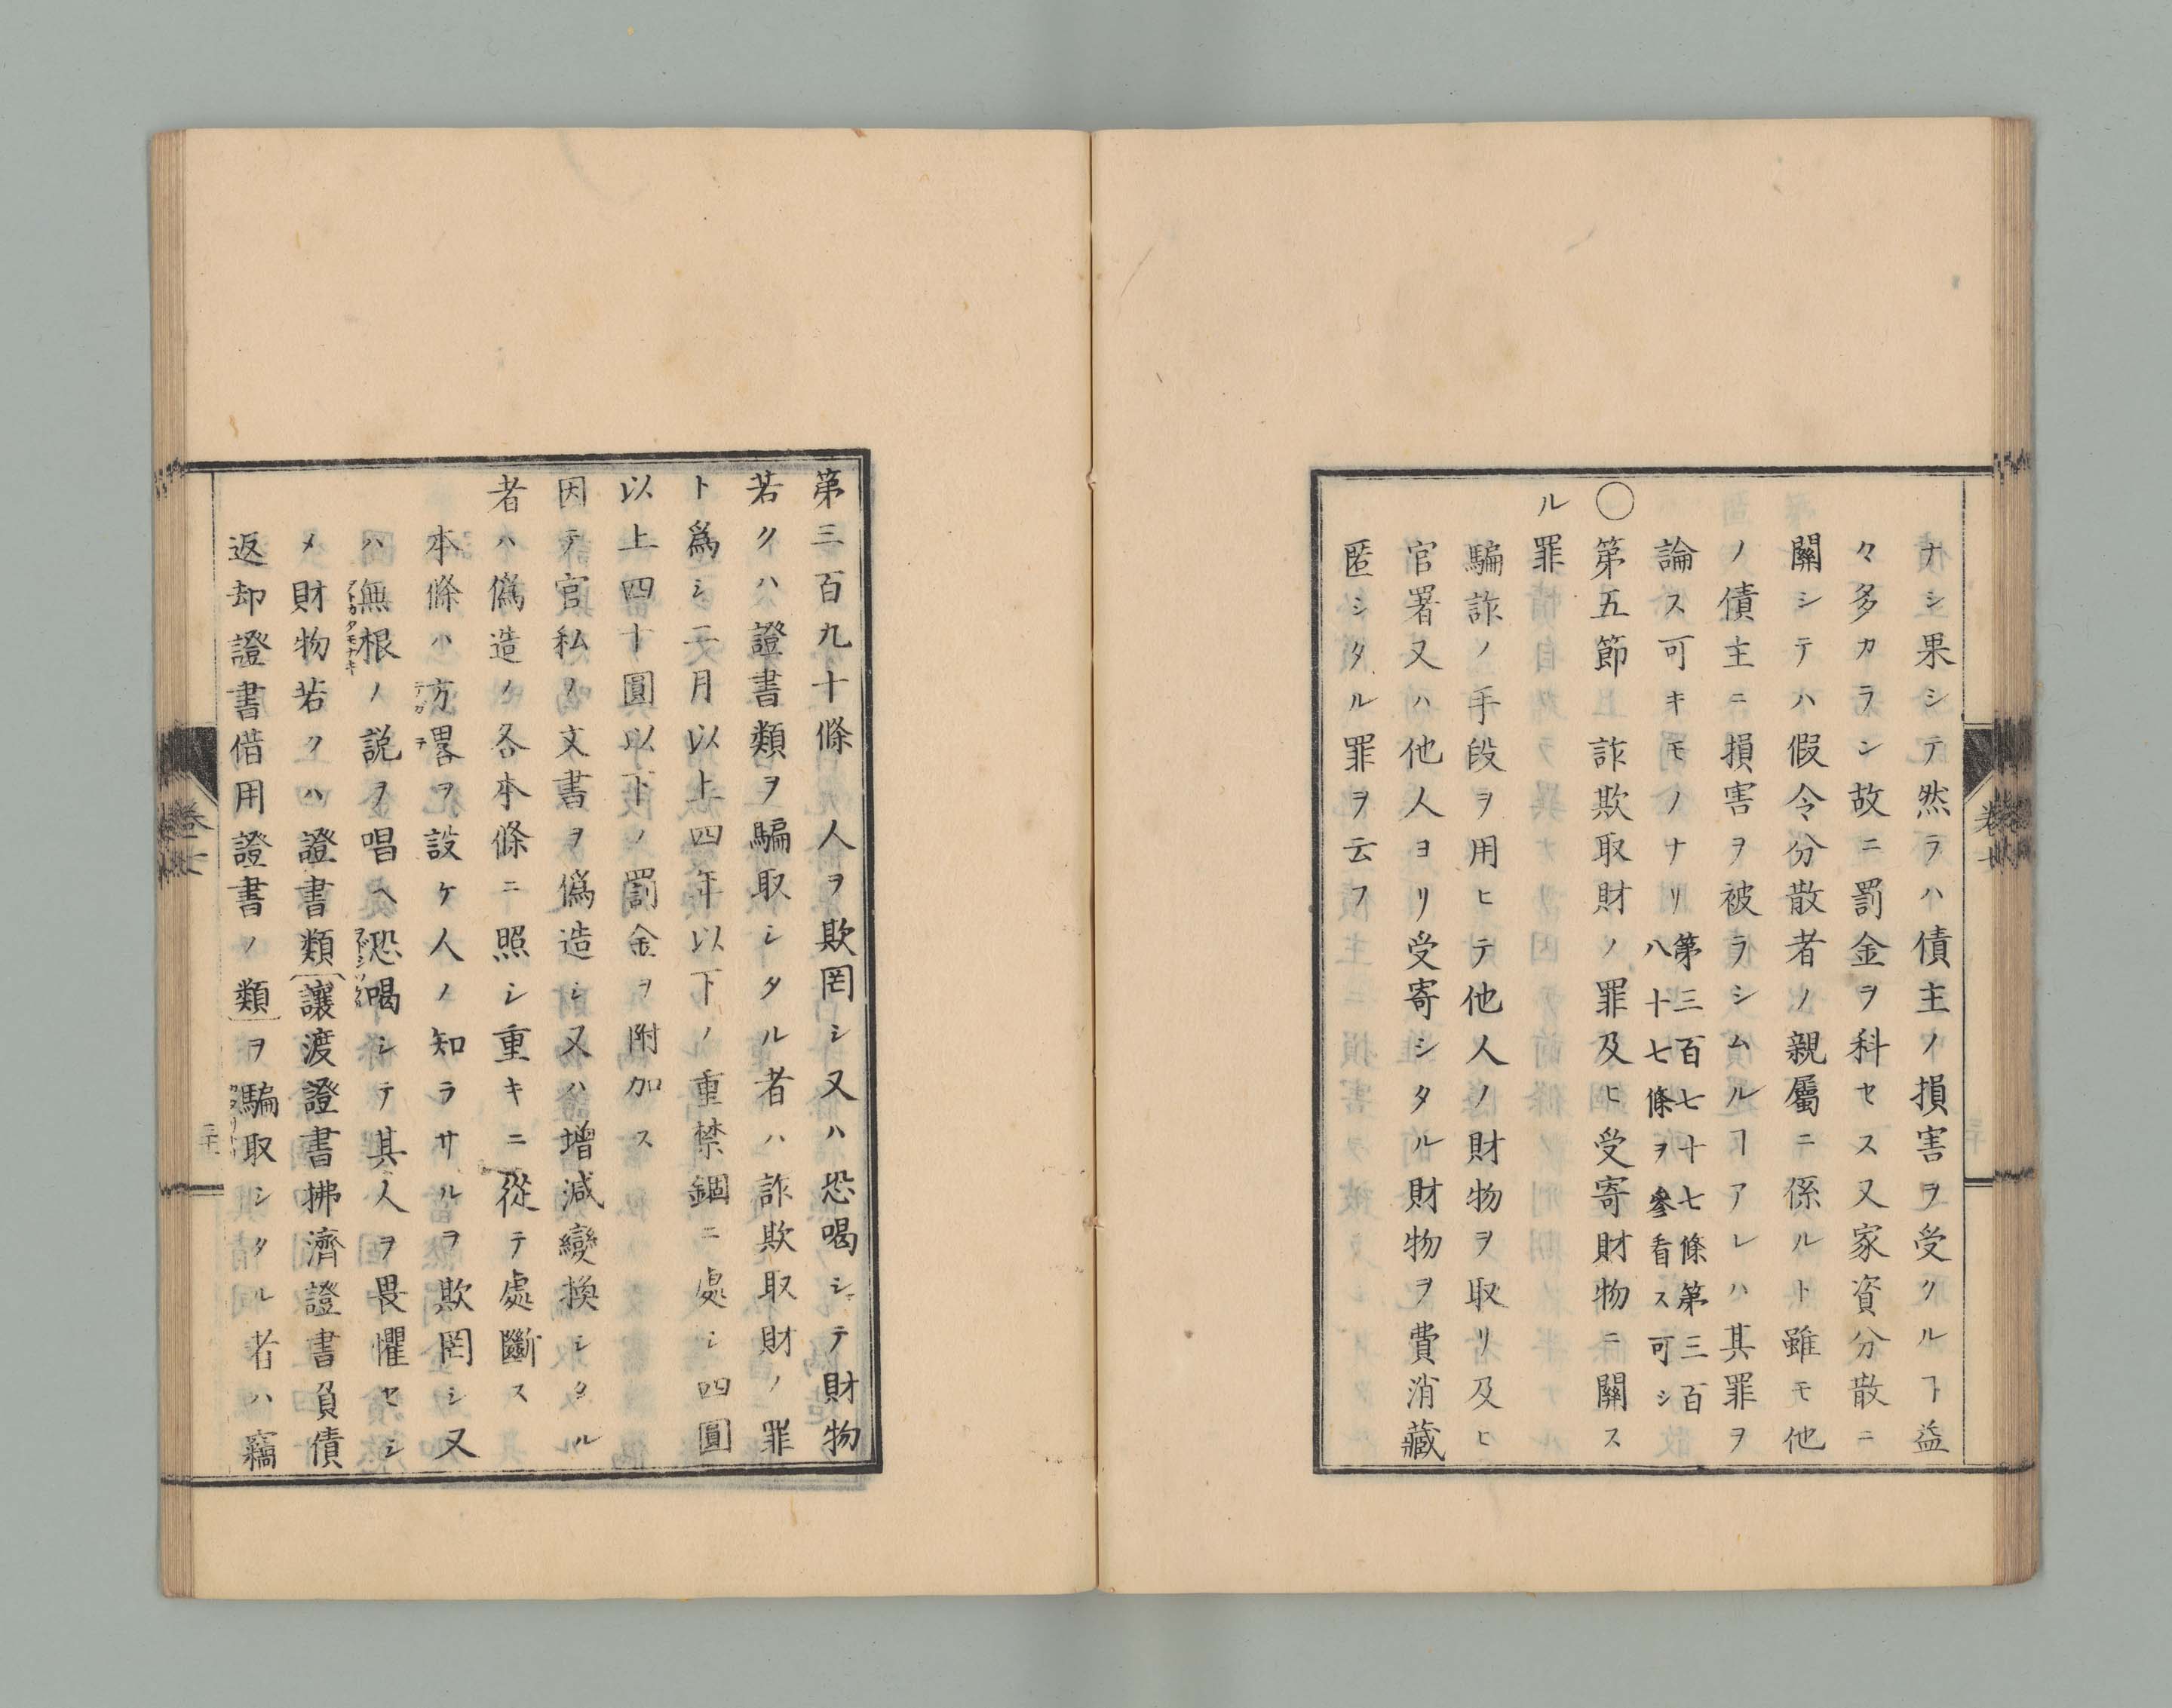 ナシ果シテ然ラハ債主ノ損害ヲ受クルヿ益
々多カラン故ニ罰金ヲ科セス又家資分散ニ
關シテハ假令分散者ノ親屬ニ係ルト雖モ他
ノ債主ニ損害ヲ被ラシムルヿアレハ其罪ヲ
論ス可キモノナリ
第三百七十七條第三百
八十七條ヲ參看ス可シ
〇第五節 詐欺取財ノ罪及ヒ受寄財物ニ關ス
ル罪
騙詐ノ手段ヲ用ヒテ他人ノ財物ヲ取リ及ヒ
官署又ハ他人ヨリ受寄シタル財物ヲ費消藏
匿シタル罪ヲ云フ
第三百九十條 人ヲ欺罔シ又ハ恐喝シテ財物
若クハ證書類ヲ騙取シタル者ハ詐欺取財ノ罪
ト爲シ二月以上四年以下ノ重禁錮ニ處シ四圓
以上四十圓以下ノ罰金ヲ附加ス
因テ官私ノ文書ヲ僞造シ又ハ增減變換シタル
者ハ僞造ノ各本條ニ照シ重キニ從テ處斷ス
本條ハ方畧ヲ設ケ人ノ知ラサルヲ欺罔シ又
ハ無根ノ説ヲ唱ヘ恐喝シテ其人ヲ畏懼セシ
メ財物若クハ證書類(讓渡證書拂濟證書負債
返却證書借用證書ノ類)ヲ騙取シタル者ハ竊